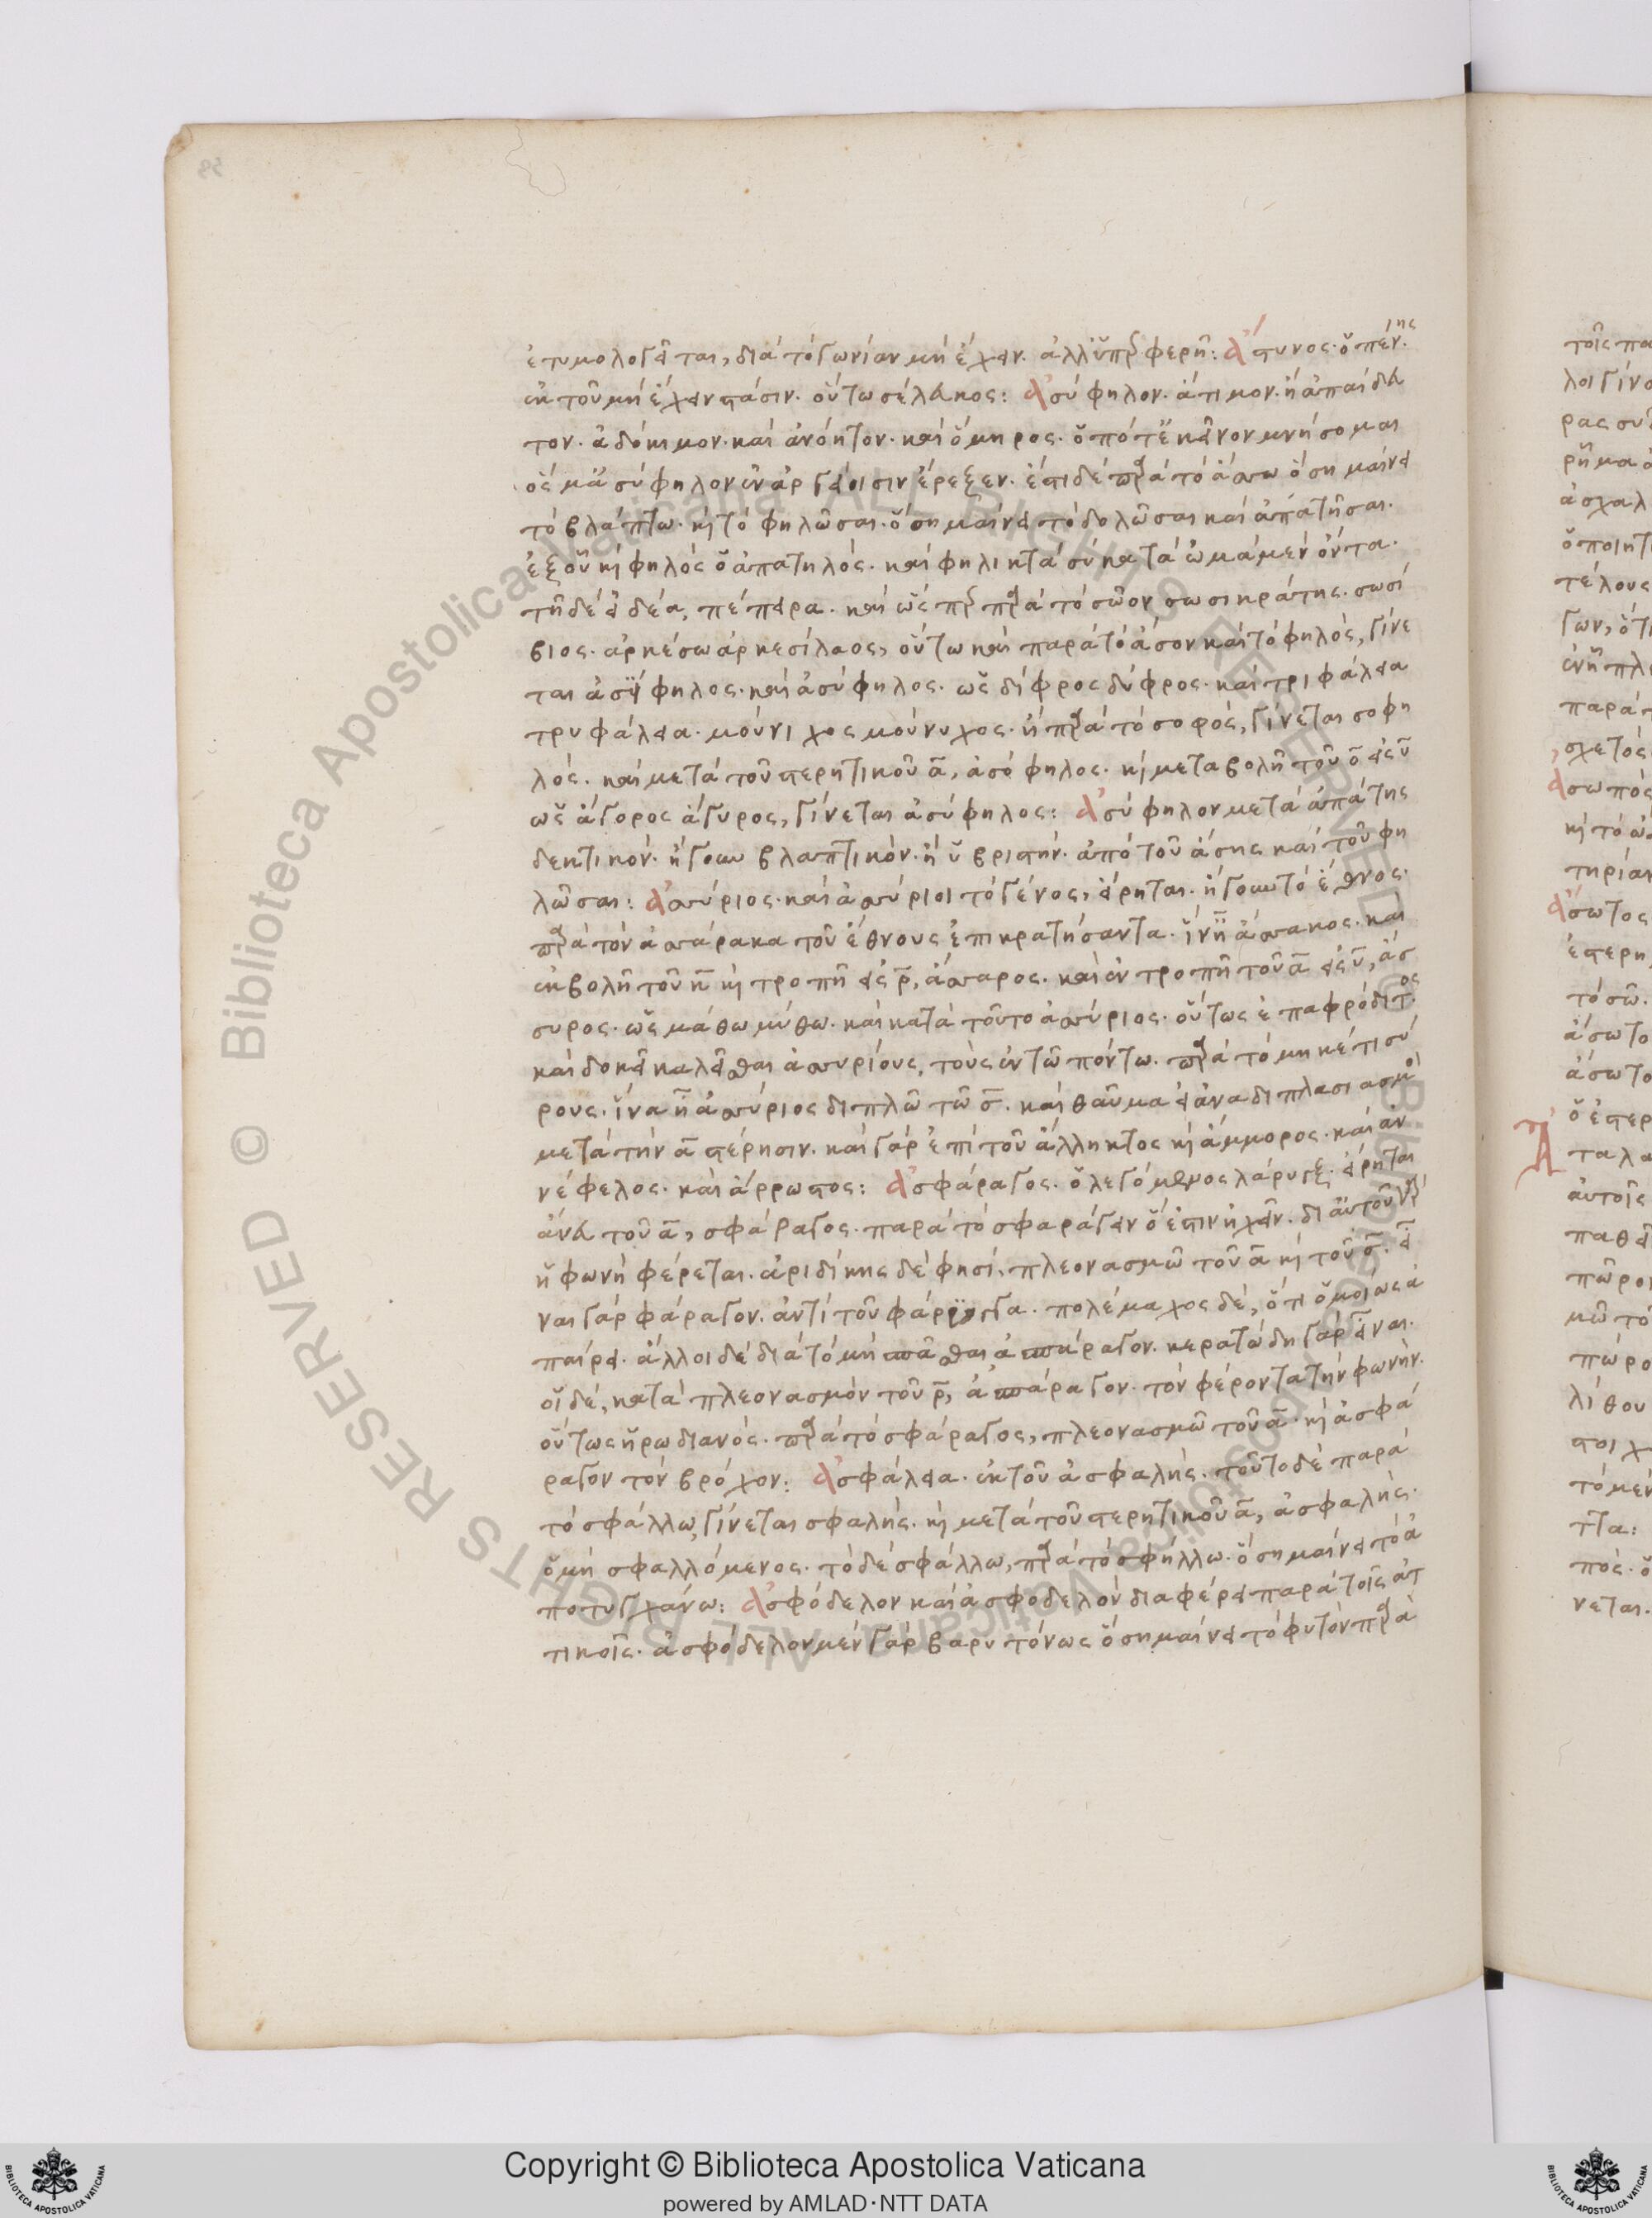 ἐτυμολογεῖται, διὰ τὸ γωνίαν μὴ ἔχειν. ἀλλ' ὑπερφερῆ: Ἄστυνος. ὁ πένης.
ἐκ τοῦ μὴ ἔχειν στάσιν. οὕτω σέλευκος: Ἀσύφηλον. ἄτιμον. ἢ ἀπαίδευ
τον. ἀδόκιμον. καὶ ἀνόητον. καὶ ὅμηρος. ὁππότ' ἐκεῖνον μνήσομαι
ὅς μ' ἀσύφηλον ἐν ἀργείοισιν ἔρεξεν. ἔστι δὲ παρὰ τὸ ἄσσω ὃ σημαίνει
τὸ βλάπτω. καὶ τὸ φηλῶσαι. ὃ σημαίνει τὸ δολῶσαι καὶ ἀπατῆσαι.
ἐξ οὗ καὶ φηλὸς ὁ ἀπατηλός. καὶ φηλικτὰ σύκα τὰ ὠμὰ μὲν ὄντα.
τῇ δὲ εἰδέα, πέπειρα. καὶ ὥσπερ παρὰ τὸ σῶον σωσικράτης. σωσί
βιος. ἀρκέσω ἀρκεσίλαος, οὕτω καὶ παρὰ τὸ ἆσον καὶ τὸ φηλὸς, γίνε
ται ἀσίφηλος. καὶ ἀσύφηλος. ὡς δίφρος δύφρος. καὶ τριφάλεια
τρυφάλεια. μούνιχος μούνυχος. ἢ παρὰ τὸ σοφός, γίνεται σοφη
λός. καὶ μετὰ τοῦ στερητικοῦ α, ἀσόφηλος. καὶ μεταβολῇ τοῦ ο εἰς υ
ὡς ἄγορος ἄγυρος, γίνεται ἀσύφηλος: Ἀσύφηλον μετὰ ἀπάτης
δεκτικόν. ἤγουν βλαπτικόν. ἢ ὑβριστήν. ἀπὸ τοῦ ἄσης καὶ τοῦ φη
λῶσαι: Ἀσσύριος. καὶ ἀσσύριοι τὸ γένος, εἴρηται. ἤγουν τὸ ἔθνος.
παρὰ τὸν ἀσσάρακα τοῦ ἔθνους ἐπικρατήσαντα. ἵν' ἦ ἄσσακος. καὶ
ἐκβολῇ τοῦ κ καὶ τροπῇ εἰς ρ, ἄσσαρος. καὶ ἐν τροπῇ τοῦ α εἰς υ, ἄσ
συρος. ὡς μάθω μύθω. καὶ κατὰ τοῦτο ἀσσύριος. οὕτως ἐπαφρόδιτος.
καὶ δοκεῖ καλεῖσθαι ἀσσυρίους, τοὺς ἐν τῷ πόντω. παρὰ τὸ μηκέτι σύ
ρους. ἵνα ἦ ἀσσύριος διπλῶ τῶ σ. καὶ θαῦμα εἰ ἀναδιπλασιασμὸς
μετὰ τὴν α στέρησιν. καὶ γὰρ ἐπὶ τοῦ ἄλληκτος καὶ ἄμμορος. καὶ ἀν
νέφελος. καὶ ἄρρωστος: Ἀσφάραγος. ὁ λεγόμενος λάρυγξ. εἴρηται
ἄνευ τοῦ α, σφάραγος. παρὰ τὸ σφαράγειν ὅ ἐστιν ἠχεῖν. δι' αὐτοῦ γὰρ
ἡ φωνὴ φέρεται. ἀριδίκης δὲ φησί, πλεονασμῶ τοῦ α καὶ τοῦ σ. εἶ
ναι γὰρ φάραγον. ἀντὶ τοῦ φάρυγγα. πολέμαχος δέ, ὅτι ὁμοίως ἀ
παίρει. ἄλλοι δὲ διὰ τὸ μὴ σπᾶσθαι ἀσπάραγον. κερατώδη γὰρ εἶναι.
οἱ δέ, κατὰ πλεονασμὸν τοῦ ρ, ἀσπάραγον. τὸν φέροντα τὴν φωνήν.
οὕτως ἡρωδιανός. παρὰ τὸ σφάραγος, πλεονασμῶ τοῦ α. καὶ ἀσφά
ραγον τὸν βρόχον: Ἀσφάλεια. ἐκ τοῦ ἀσφαλής. τοῦτο δὲ παρὰ
τὸ σφάλλω, γίνεται σφαλής. καὶ μετὰ τοῦ στερητικοῦ α, ἀσφαλής.
ὁ μὴ σφαλλόμενος. τὸ δὲ σφάλλω, παρὰ τὸ σφήλλω. ὃ σημαίνει τὸ ἀ
ποτυγχάνω: Ἀσφόδελον καὶ ἀσφοδελὸν διαφέρει παρὰ τοῖς ἀτ
τικοῖς. ἀσφόδελον μὲν γὰρ βαρυτόνως ὃ σημαίνει τὸ φυτὸν παρὰ
Copyright © Biblioteca Apostolica Vaticana
powered by AMLAD·NTT DATA